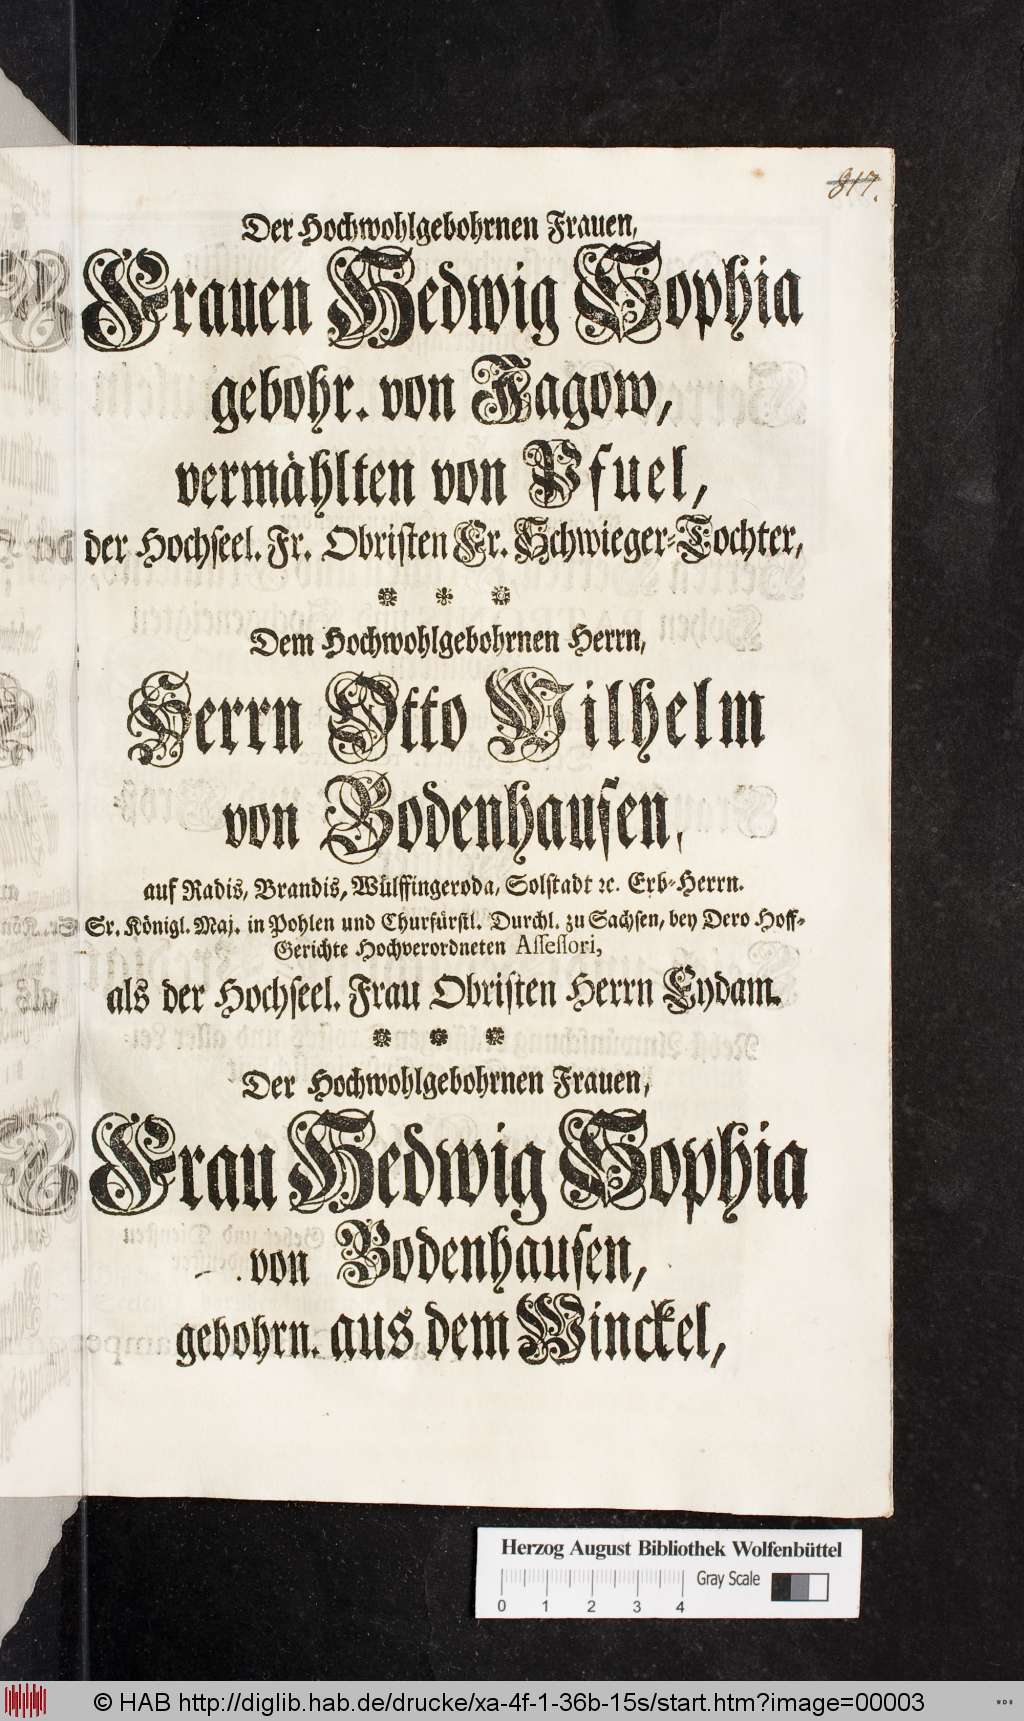 817.
Der Hochwohlgebohrnen Frauen,
Frauen Hedwig Sophia
gebohr. von Jagow,
vermählten von Pfuel,
der Hochseel. Fr. Obristen Fr. Schwieger-Tochter,
Dem Hochwohlgebohrnen Herrn,
Herrn Otto Wilhelm
von Bodenhausen,
auf Radis, Brandis, Wülffingeroda, Solstadt ꝛc. Erb-Herrn.
Sr. Königl. Maj. in Pohlen und Churfürstl. Durchl. zu Sachsen, bey Dero Hoff-
Gerichte Hochverordneten Assessori,
als der Hochseel. Frau Obristen Herrn Eydam.
Der Hochwohlgebohrnen Frauen,
Frau Hedwig Sophia
von Bodenhausen,
gebohrn. aus dem Winckel,
Herzog August Bibliothek Wolfenbüttel
Gray Scale
0 1 2 3 4
© HAB http://diglib.hab.de/drucke/xa-4f-1-36b-15s/start.htm?image=00003
WDB